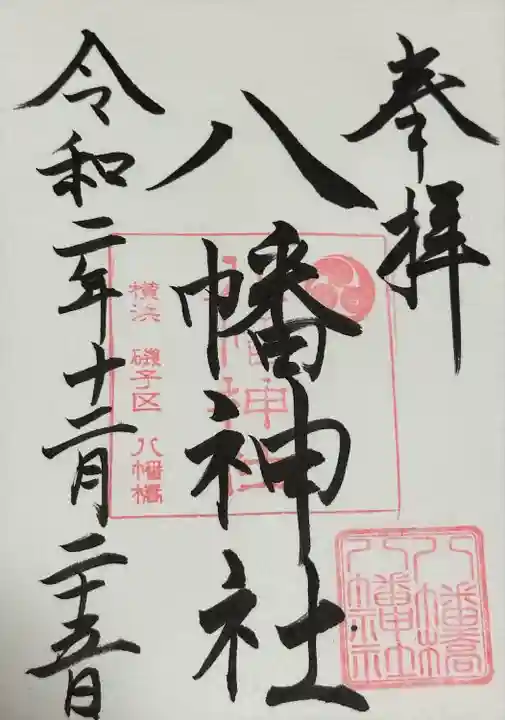 奉拝
八幡神社
横浜 磯子区 八幡橋
令和二年十二月二十五日
八幡橋
八幡神社